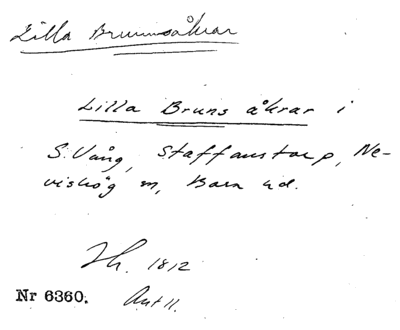 Lilla Brunnsåkrar
Lilla Bruns åkrar i
S. Vång, Staffanstorp, Ne-
vishög sn, Bara hd.
Ih. 1812
Nr 6360. Ant 11.